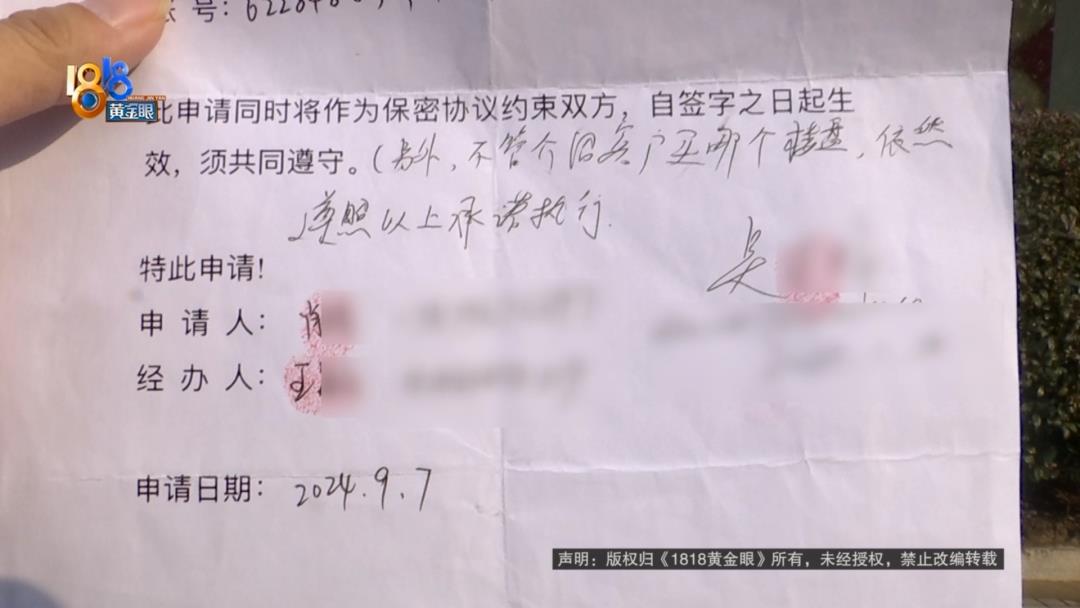 账号：622848
1818
黄金眼
此申请同时将作为保密协议约束双方，自签字之日起生
效，须共同遵守。（另外，不管介绍客户买哪个楼盘，依然
遵照以上承诺执行.
吴
特此申请!
申 请 人： 肖
经 办 人： 王
申请日期： 2024.9.7
声明：版权归《1818黄金眼》所有，未经授权，禁止改编转载